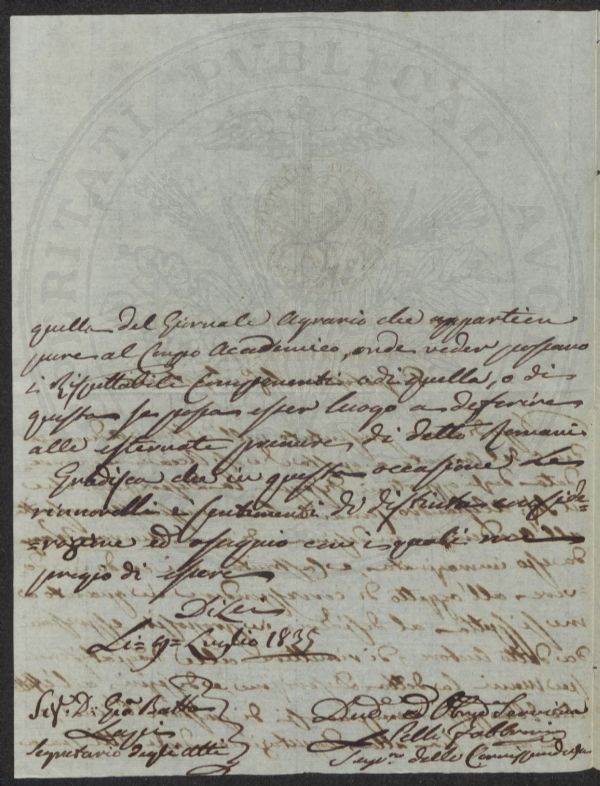 PROSPERITATI PUBLICAE AUGENDAE
quella del Giornale Agrario che appartien
pure al Corpo Accademico, onde veder possano
i Rispettabili componenti o di quella, o di
questa se possa esser luogo a deferire
alle esternate premure di detto Romani
Gradisca che in questa occasione Le
rinnovelli i sentimenti di distinta conside=
=razione ed ossequio con i quali mi
pregio di essere
Di Lei
Li = 9 = Luglio 1835
Sig.r D. Gio Batta
Segretario degli Atti
Dev.mo ed Obb.mo Servitore
Lelli Fabbrini
Seg.rio delle Corrispondenze